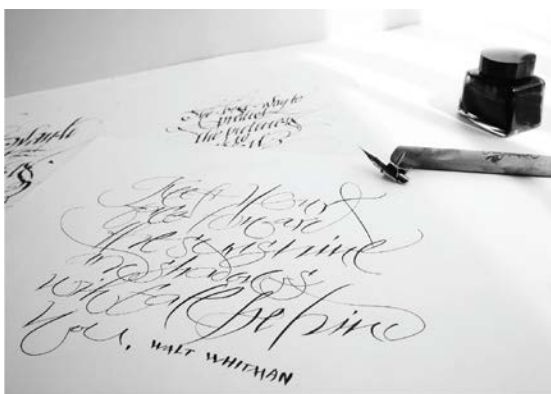 The best way to
predict
the future
Keep Your
face
the sunshine
and shadows
will fall behind
You. WALT WHITMAN